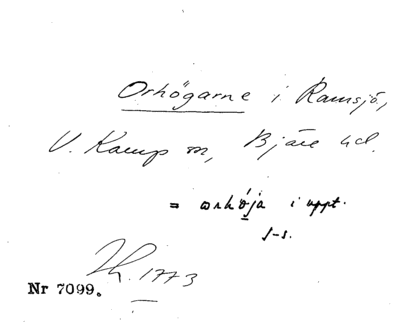 Orhögarne i Ramsjö,
V. Karup sn, Bjäre hd.
= orhöja i uppt.
s-s.
Lh. 1773
Nr 7099.